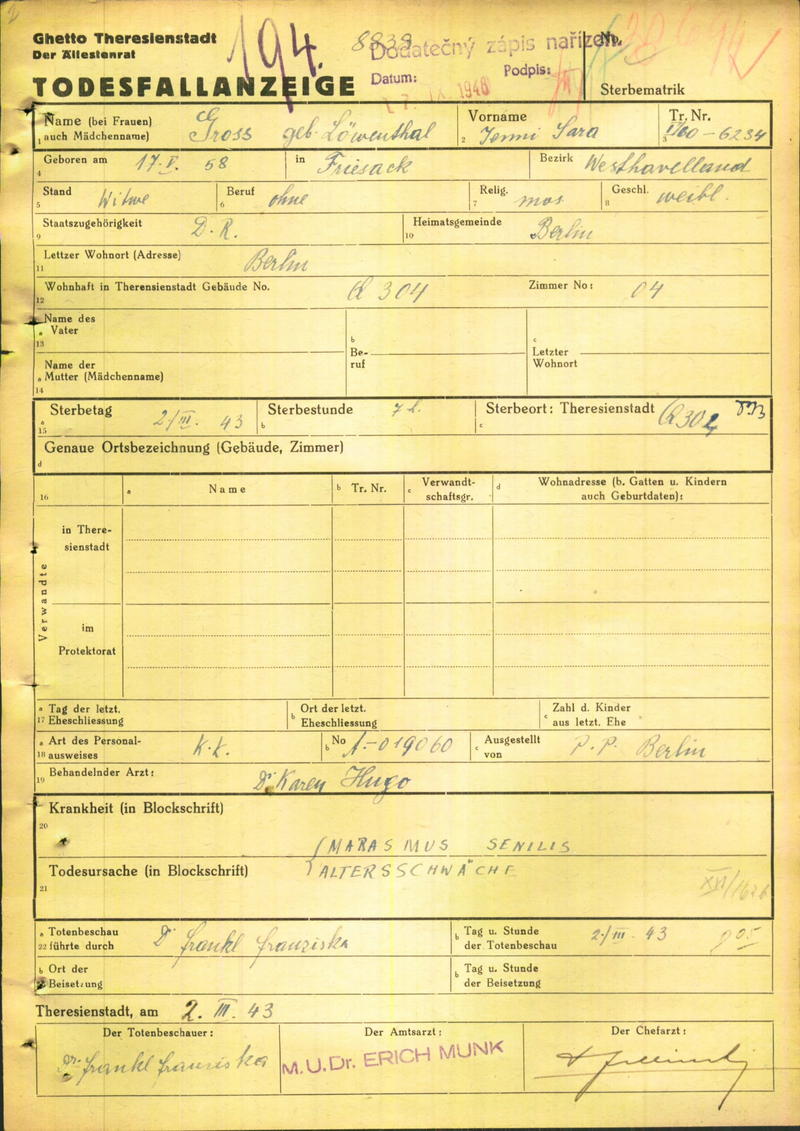 Ghetto Theresienstadt
Der Ältestenrat
TODESFALLANZEIGE
194.
8839
Dodatečný zápis nařízen
Datum: 1948 Podpis:
Nr.
Sterbematrik
Name (bei Frauen) auch Mädchenname) Gross geb. Löwenthal
1
Vorname Jenni Sara
2
Tr. Nr. I/60-6234
3
Geboren am 17. V. 58 in Friesack Bezirk Westhavelland
4
Stand Witwe Beruf ohne Relig. mos Geschl. weibl.
5 6 7 8
Staatszugehörigkeit D.R. Heimatsgemeinde Berlin
9 10
Lettzer Wohnort (Adresse) Berlin
11
Wohnhaft in Therensienstadt Gebäude No. Q 304 Zimmer No: 04
12
Name des
a Vater
13
Name der
a Mutter (Mädchenname)
14
b
Be-
ruf
c
Letzter
Wohnort
Sterbetag 2/III. 43 Sterbestunde 7 Sterbeort: Theresienstadt Q 304
a 15 b c
Genaue Ortsbezeichnung (Gebäude, Zimmer)
d
16 a Name b Tr. Nr. c Verwandt-schaftsgr. d Wohnadresse (b. Gatten u. Kindern auch Geburtdaten):
Verwandte
in There-
sienstadt
im
Protektorat
a Tag der letzt. b Ort der letzt. c Zahl d. Kinder
17 Eheschliessung Eheschliessung aus letzt. Ehe
a Art des Personal- K.K. b No A-019060 c Ausgestellt P.P. Berlin
18 ausweises von
Behandelnder Arzt: Dr Karen Hugo
19
Krankheit (in Blockschrift)
20
MARASMUS SENILIS
Todesursache (in Blockschrift) ALTERSSCHWÄCHE
21
a Totenbeschau Dr frankl franziska b Tag u. Stunde 2/III 43 9 05
22 führte durch der Totenbeschau
b Ort der b Tag u. Stunde
Beisetzung der Beisetzung
Theresienstadt, am 2. III. 43
Der Totenbeschauer: Der Amtsarzt: Der Chefarzt:
Dr. frankl franziska M.U.Dr. ERICH MUNK